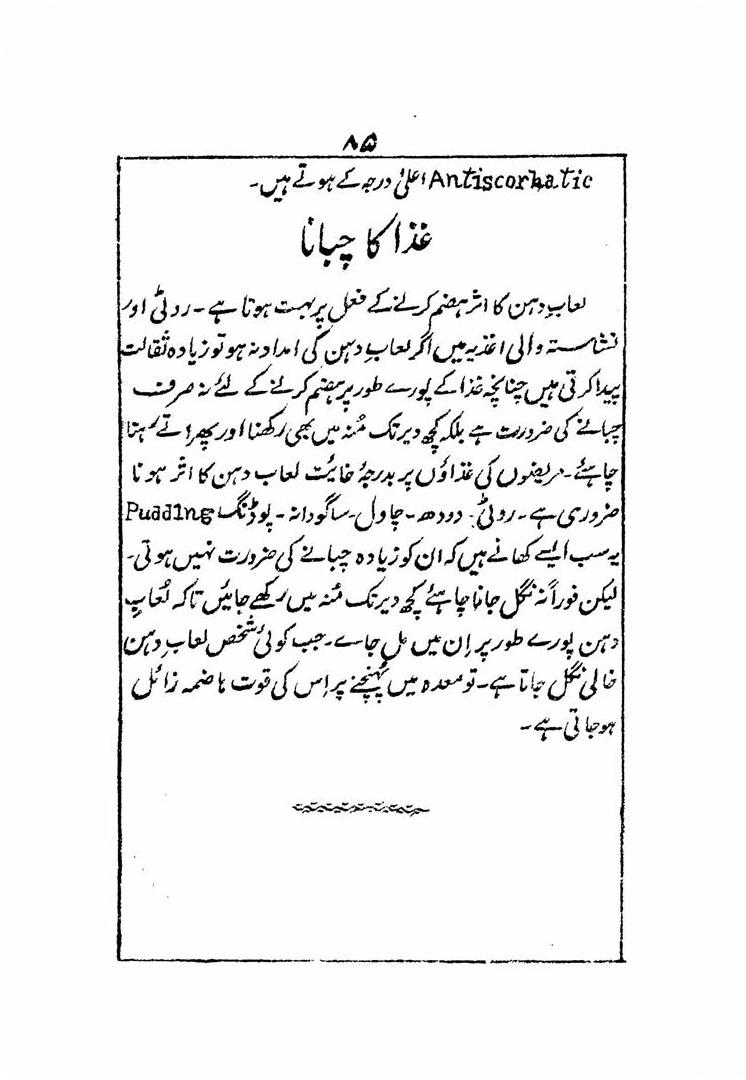 ۸۵
Antiscorbatic اعلیٰ درجہ کے ہوتے ہیں۔
غذا کا چبانا
لعابِ دہن کا اثر ہضم کرنے کے فعل پر بہت ہوتا ہے۔ روٹی اور
نشاستہ والی اغذیہ میں اگر لعاب دہن کی امداد نہ ہو تو زیادہ ثقالت
پیدا کرتی ہیں چنانچہ غذا کے پورے طور پر ہضم کرنے کے لئے نہ صرف
چبانے کی ضرورت ہے بلکہ کچھ دیر تک مُنہ میں بھی رکھنا اور پھراتے رہنا
چاہئے۔ مریضوں کی غذاؤں پر بدرجۂ غائیت لعاب دہن کا اثر ہونا
ضروری ہے۔ روٹی۔ دودھ۔ چاول۔ ساگودانہ۔ پوڈنگ Pudding
یہ سب ایسے کھانے ہیں کہ ان کو زیادہ چبانے کی ضرورت نہیں ہوتی۔
لیکن فوراً نہ نگل جانا چاہئے کچھ دیر تک مُنہ میں رکھے جائیں تاکہ لُعابِ
دہن پورے طور پر اِن میں مل جاے۔ جب کوئی شخص لعاب دہن
خالی نگل جاتا ہے۔ تو معدہ میں پُہنچنے پر اِس کی قوت ہاضمہ زائل
ہو جاتی ہے۔